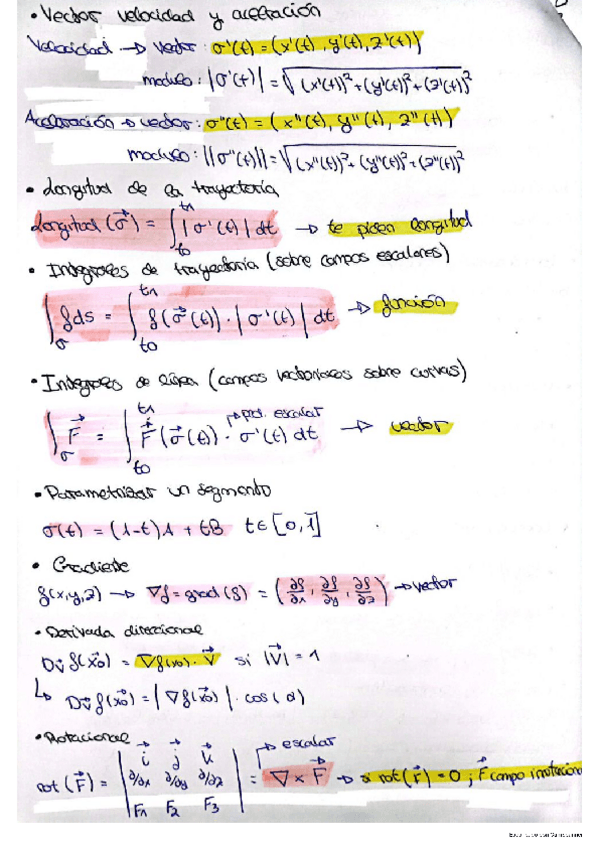 • Vector velocidad y aceleración
Velocidad → vector: σ'(t) = (x'(t), y'(t), z'(t))
modulo: |σ'(t)| = √((x'(t))² + (y'(t))² + (z'(t))²)
Aceleración → vector: σ''(t) = (x''(t), y''(t), z''(t))
modulo: ||σ''(t)|| = √((x''(t))² + (y''(t))² + (z''(t))²)
• Longitud de la trayectoría
Longitud (σ⃗) = ∫_{t0}^{t1} |σ'(t)| dt → te piden longitud
• Integrales de trayectoría (sobre campos escalares)
∫_σ f ds = ∫_{t0}^{t1} f(σ⃗(t)) · |σ'(t)| dt → función
• Integrales de línea (campos vectoriales sobre curvas)
∫_σ F⃗ = ∫_{t0}^{t1} F⃗(σ⃗(t)) · σ'(t) dt → vector
→ pd. escalar
• Parametrizar un segmento
σ(t) = (1-t)A + tB t∈[0,1]
• Gradiente
f(x,y,z) → ∇f = grad(f) = (∂f/∂x, ∂f/∂y, ∂f/∂z) → vector
• Derivada direccional
Dv⃗ f(x⃗0) = ∇f(x0) · V⃗ si |V⃗| = 1
↳ Dv⃗ f(x⃗0) = |∇f(x⃗0)| · cos(α)
• Rotacional
→ escalar
rot(F⃗) = | i⃗ j⃗ k⃗ ; ∂/∂x ∂/∂y ∂/∂z ; F1 F2 F3 | = ∇ × F⃗ → si rot(F⃗) = 0; F⃗ campo irrotacion